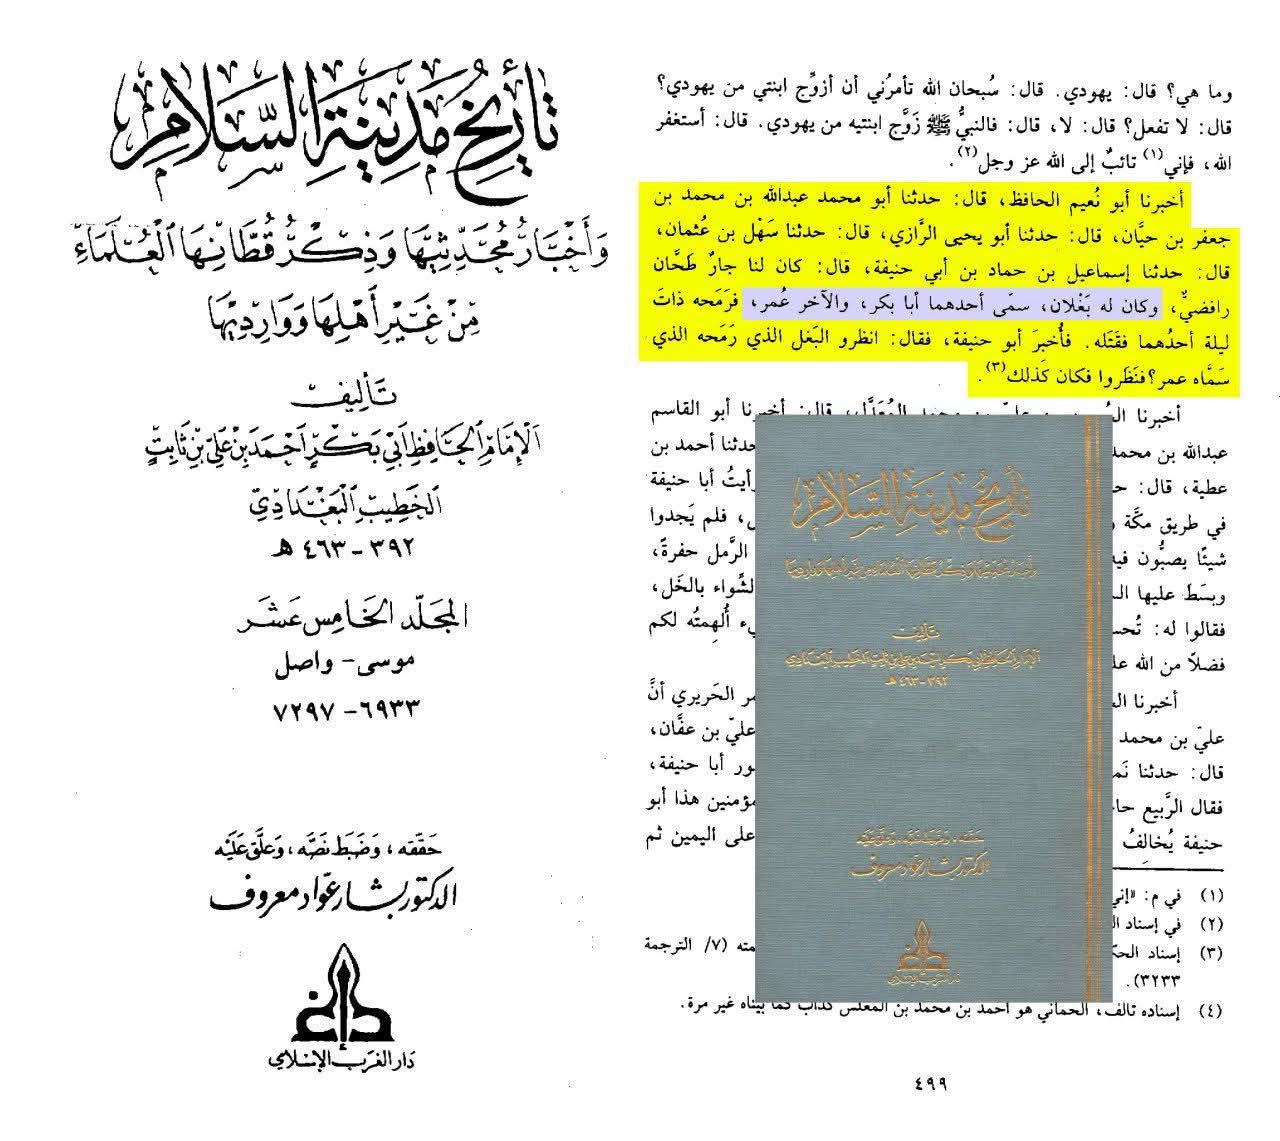 تأريخ مدينة السلام
وَأخبَارُ مُحَدِّثيهَا وَذِكْرُ قُطَّانِهَا العُلَمَاءِ
مِنْ غَيْرِ أَهْلِهَا وَوَارِدِيهَا
تأليف
الإمَامِ الحَافِظِ أَبِي بَكْرٍ أَحْمَدَ بْنِ عَلِيِّ بْنِ ثَابِتٍ
الخَطِيبِ البَغْدَادِيِّ
٣٩٢ - ٤٦٣ هـ
المجلّد الخَامِسَ عَشَرَ
موسى - واصل
٦٩٣٣ - ٧٢٩٧
حَقَّقَه، وَضَبَط نَصَّه، وَعَلَّق عَلَيْه
الدكتور بشار عوّاد معروف
دَار الغَربِ الإسلامي
وما هي؟ قال: يهودي. قال: سُبحان الله تأمرُني أن أزوِّج ابنتي من يهودي؟
قال: لا تفعل؟ قال: لا، قال: فالنبيُّ ﷺ زَوَّج ابنتيه من يهودي. قال: أستغفر
الله، فإني(١) تائبٌ إلى الله عز وجل(٢).
أخبرنا أبو نُعيم الحافظ، قال: حدثنا أبو محمد عبدالله بن محمد بن
جعفر بن حيَّان، قال: حدثنا أبو يحيى الرَّازي، قال: حدثنا سَهْل بن عُثمان،
قال: حدثنا إسماعيل بن حماد بن أبي حنيفة، قال: كان لنا جارٌ طَحَّان
رافضيٌّ، وكان له بَغْلان، سمّى أحدهما أبا بكر، والآخر عُمر، فرَمَحه ذاتَ
ليلة أحدُهما فقَتَله. فأُخبِرَ أبو حنيفة، فقال: انظرو البَغل الذي رَمَحه الذي
سَمَّاه عمر؟ فنَظَروا فكان كَذلك(٣).
أخبرنا بن محمد المُعَدَّل، قال: أخبرنا أبو القاسم
عبدالله بن محمد حدثنا أحمد بن
عطية، قال: رأيتُ أبا حنيفة
في طريق مكَّة فلم يَجدوا
شيئًا يصبُّون الرَّمل حفرةً،
وبسَطَ عليها الشِّواء بالخَل،
فقالوا له: أُلهِمتُه لكم
فضلًا من الله
أخبرنا الحَريري أنَّ
عليّ بن محمد عليّ بن عفَّان،
قال: حدثنا أبا حنيفة،
فقال الرَّبيع هذا أبو
حنيفة يُخالِفُ على اليمين ثم
(١) في م: «إني
(٢) في إسناد
(٣) إسناد (٧/ الترجمة
٣٢٣٣).
(٤) إسناده تالف، الحماني هو أحمد بن محمد بن المغلس كذاب كما بيناه غير مرة.
٤٩٩
تأريخ مدينة السلام
تأليف
الإمام الحافظ أبي بكر أحمد بن علي بن ثابت الخطيب البغدادي
٣٩٢ - ٤٦٣ هـ
حققه، وضبط نصه، وعلق عليه
الدكتور بشار عوّاد معروف
دار الغرب الإسلامي